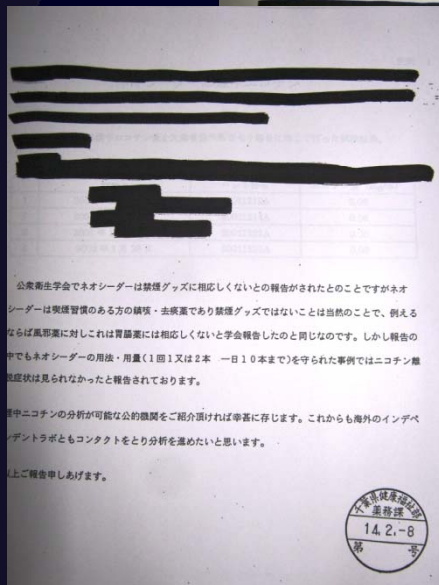 公衆衛生学会でネオシーダーは禁煙グッズに相応しくないとの報告がされたとのことですがネオ
シーダーは喫煙習慣のある方の鎮咳・去痰薬であり禁煙グッズではないことは当然のことで、例える
ならば風邪薬に対しこれは胃腸薬には相応しくないと学会報告したのと同じなのです。しかし報告の
中でもネオシーダーの用法・用量(1回1又は2本 一日10本まで)を守られた事例ではニコチン離
脱症状は見られなかったと報告されております。
中ニコチンの分析が可能な公的機関をご紹介頂ければ幸甚に存じます。これからも海外のインデペ
ンデントラボともコンタクトをとり分析を進めたいと思います。
以上ご報告申しあげます。
千葉県健康福祉部
薬務課
14.2.-8
第 号